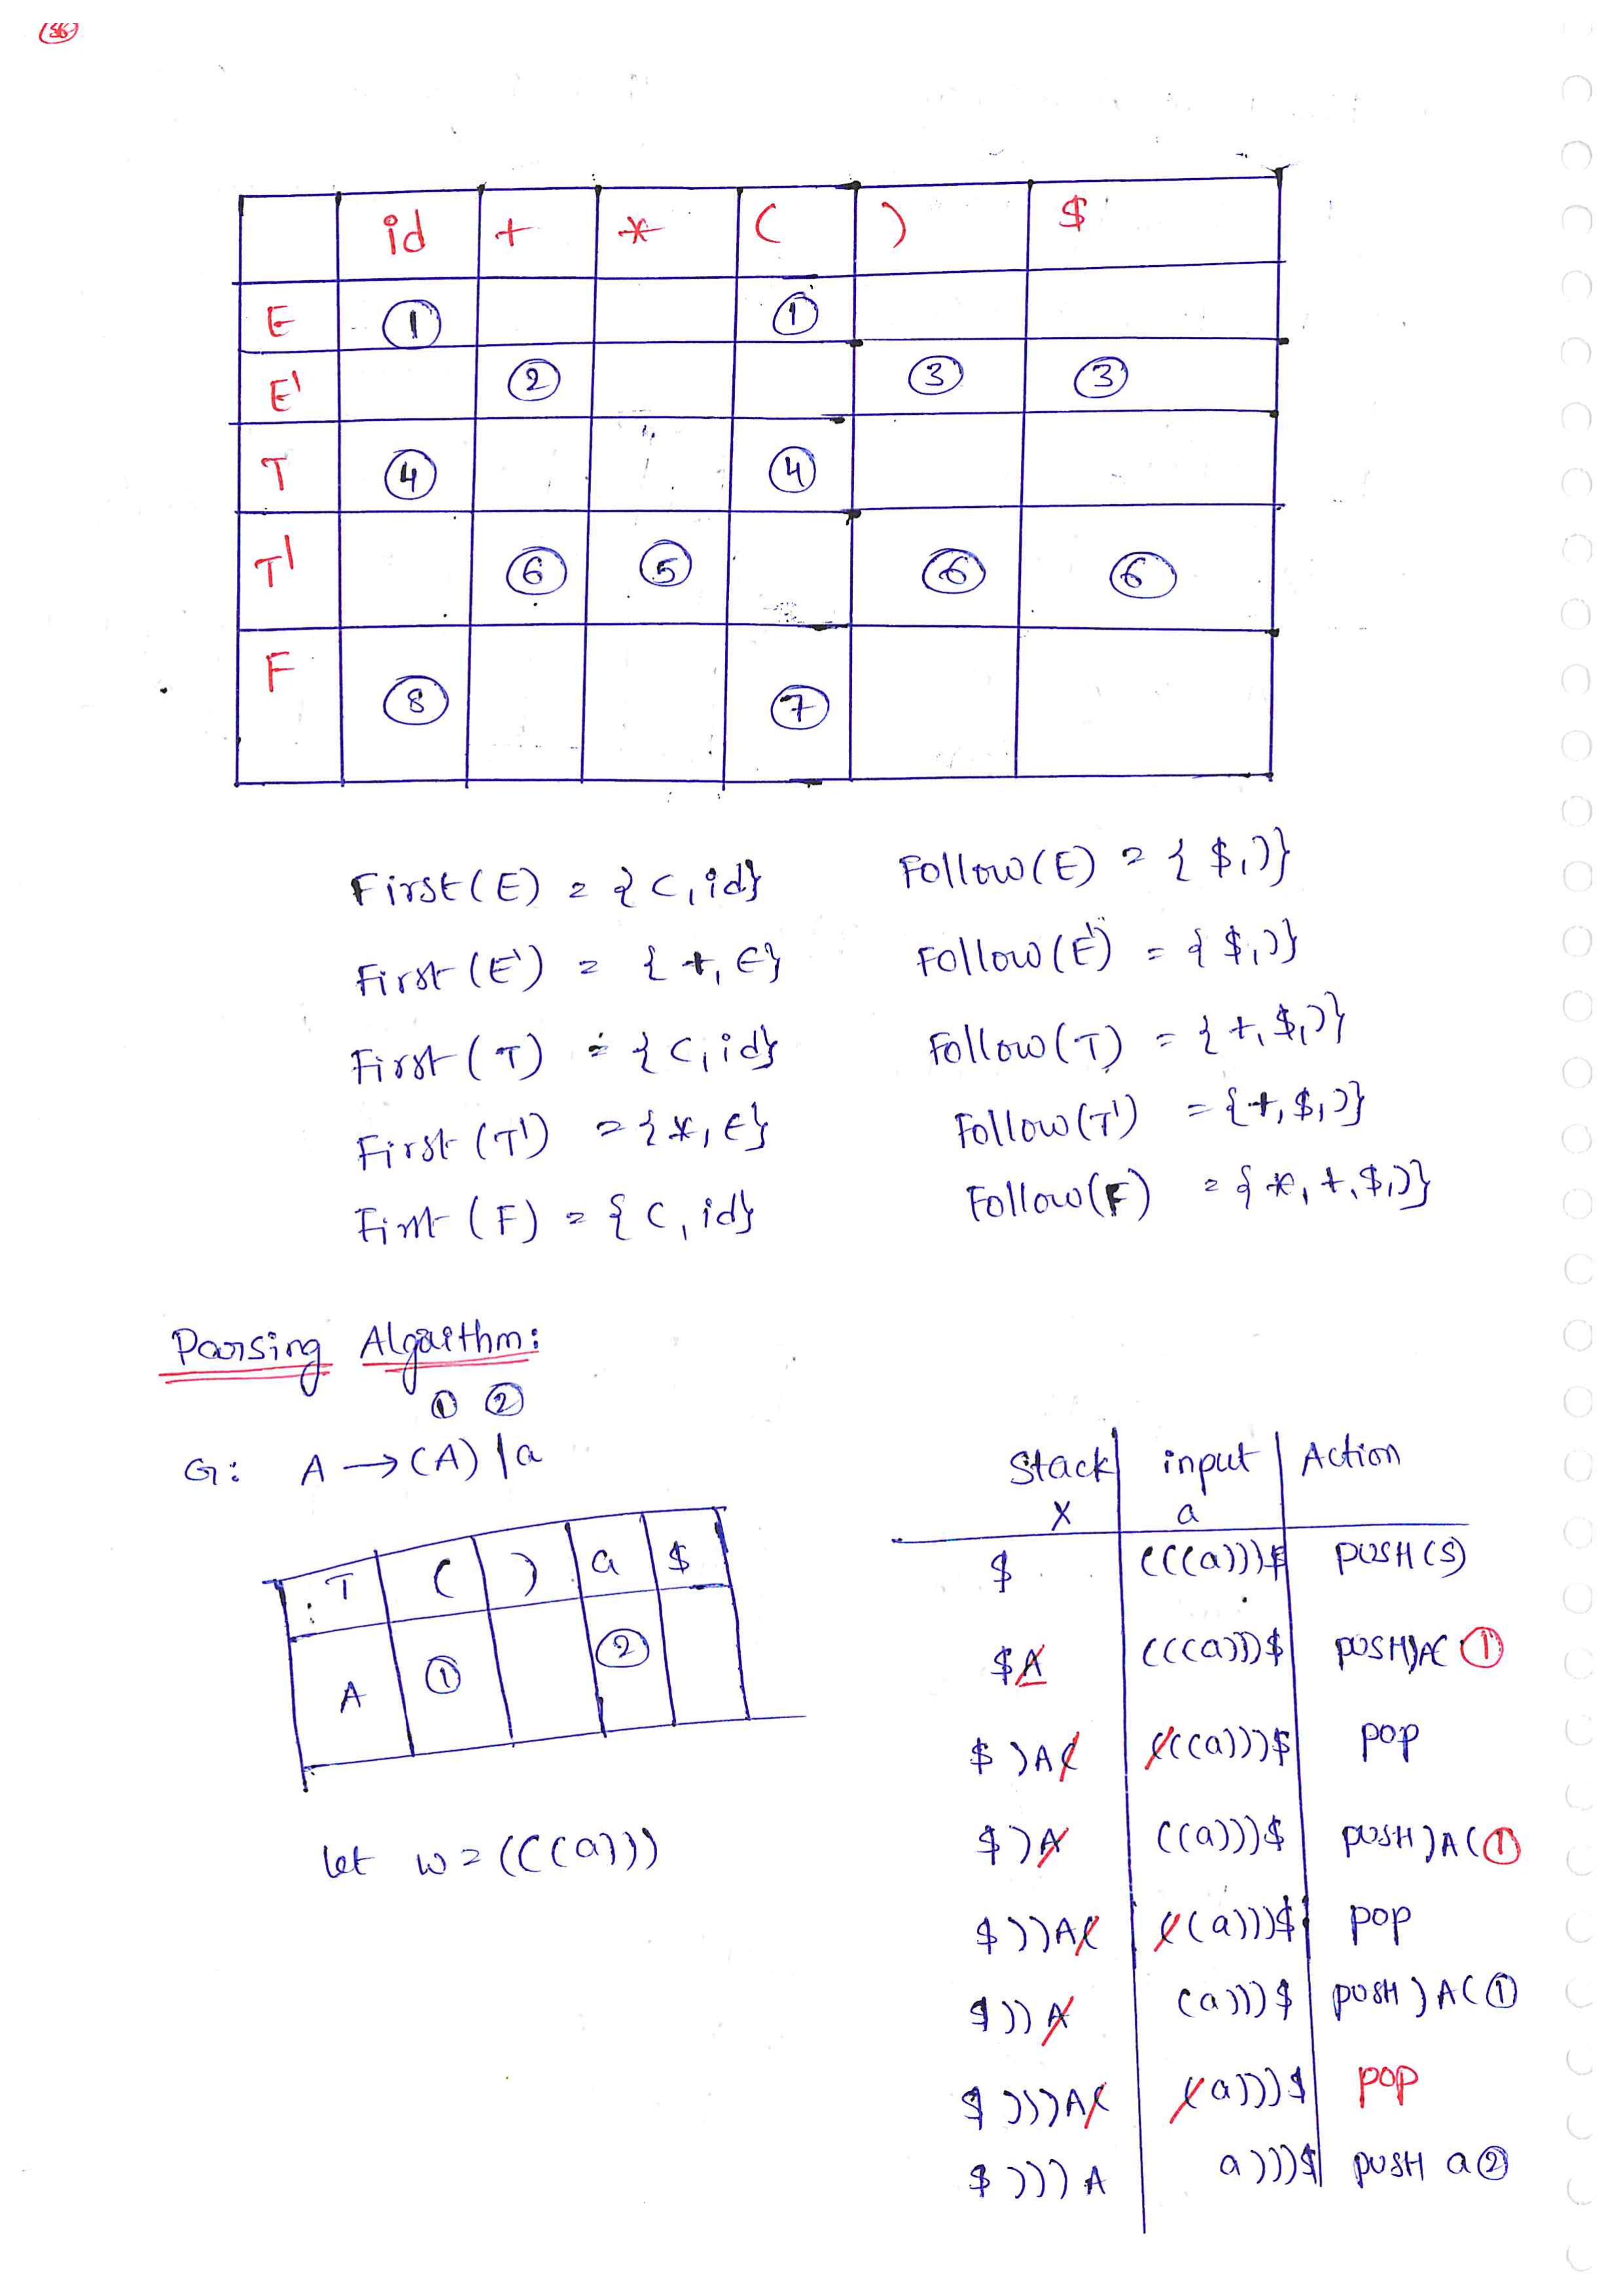 36
id + * ( ) $
E ① ①
E' ② ③ ③
T ④ ④
T' ⑥ ⑤ ⑥ ⑥
F ⑧ ⑦
First(E) = {(, id} Follow(E) = {$, )}
First(E') = {+, ∈} Follow(E') = {$, )}
First(T) = {(, id} Follow(T) = {+, $, )}
First(T') = {*, ∈} Follow(T') = {+, $, )}
First(F) = {(, id} Follow(F) = {*, +, $, )}
Parsing Algorithm:
① ②
G: A → (A) | a
T ( ) a $
A ① ②
let w = (((a)))
Stack input Action
X a
$ (((a)))$ PUSH(S)
$A (((a)))$ PUSH)A( ①
$)A( (((a)))$ pop
$)A ((a)))$ PUSH)A( ①
$))A( ((a)))$ pop
$))A (a)))$ PUSH)A( ①
$)))A( (a)))$ pop
$)))A a)))$ PUSH a ②